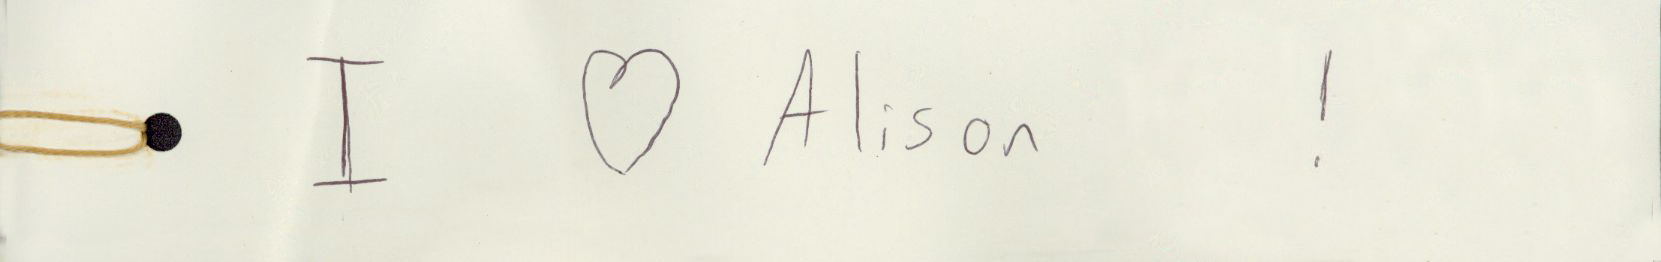 I ♡ Alison !